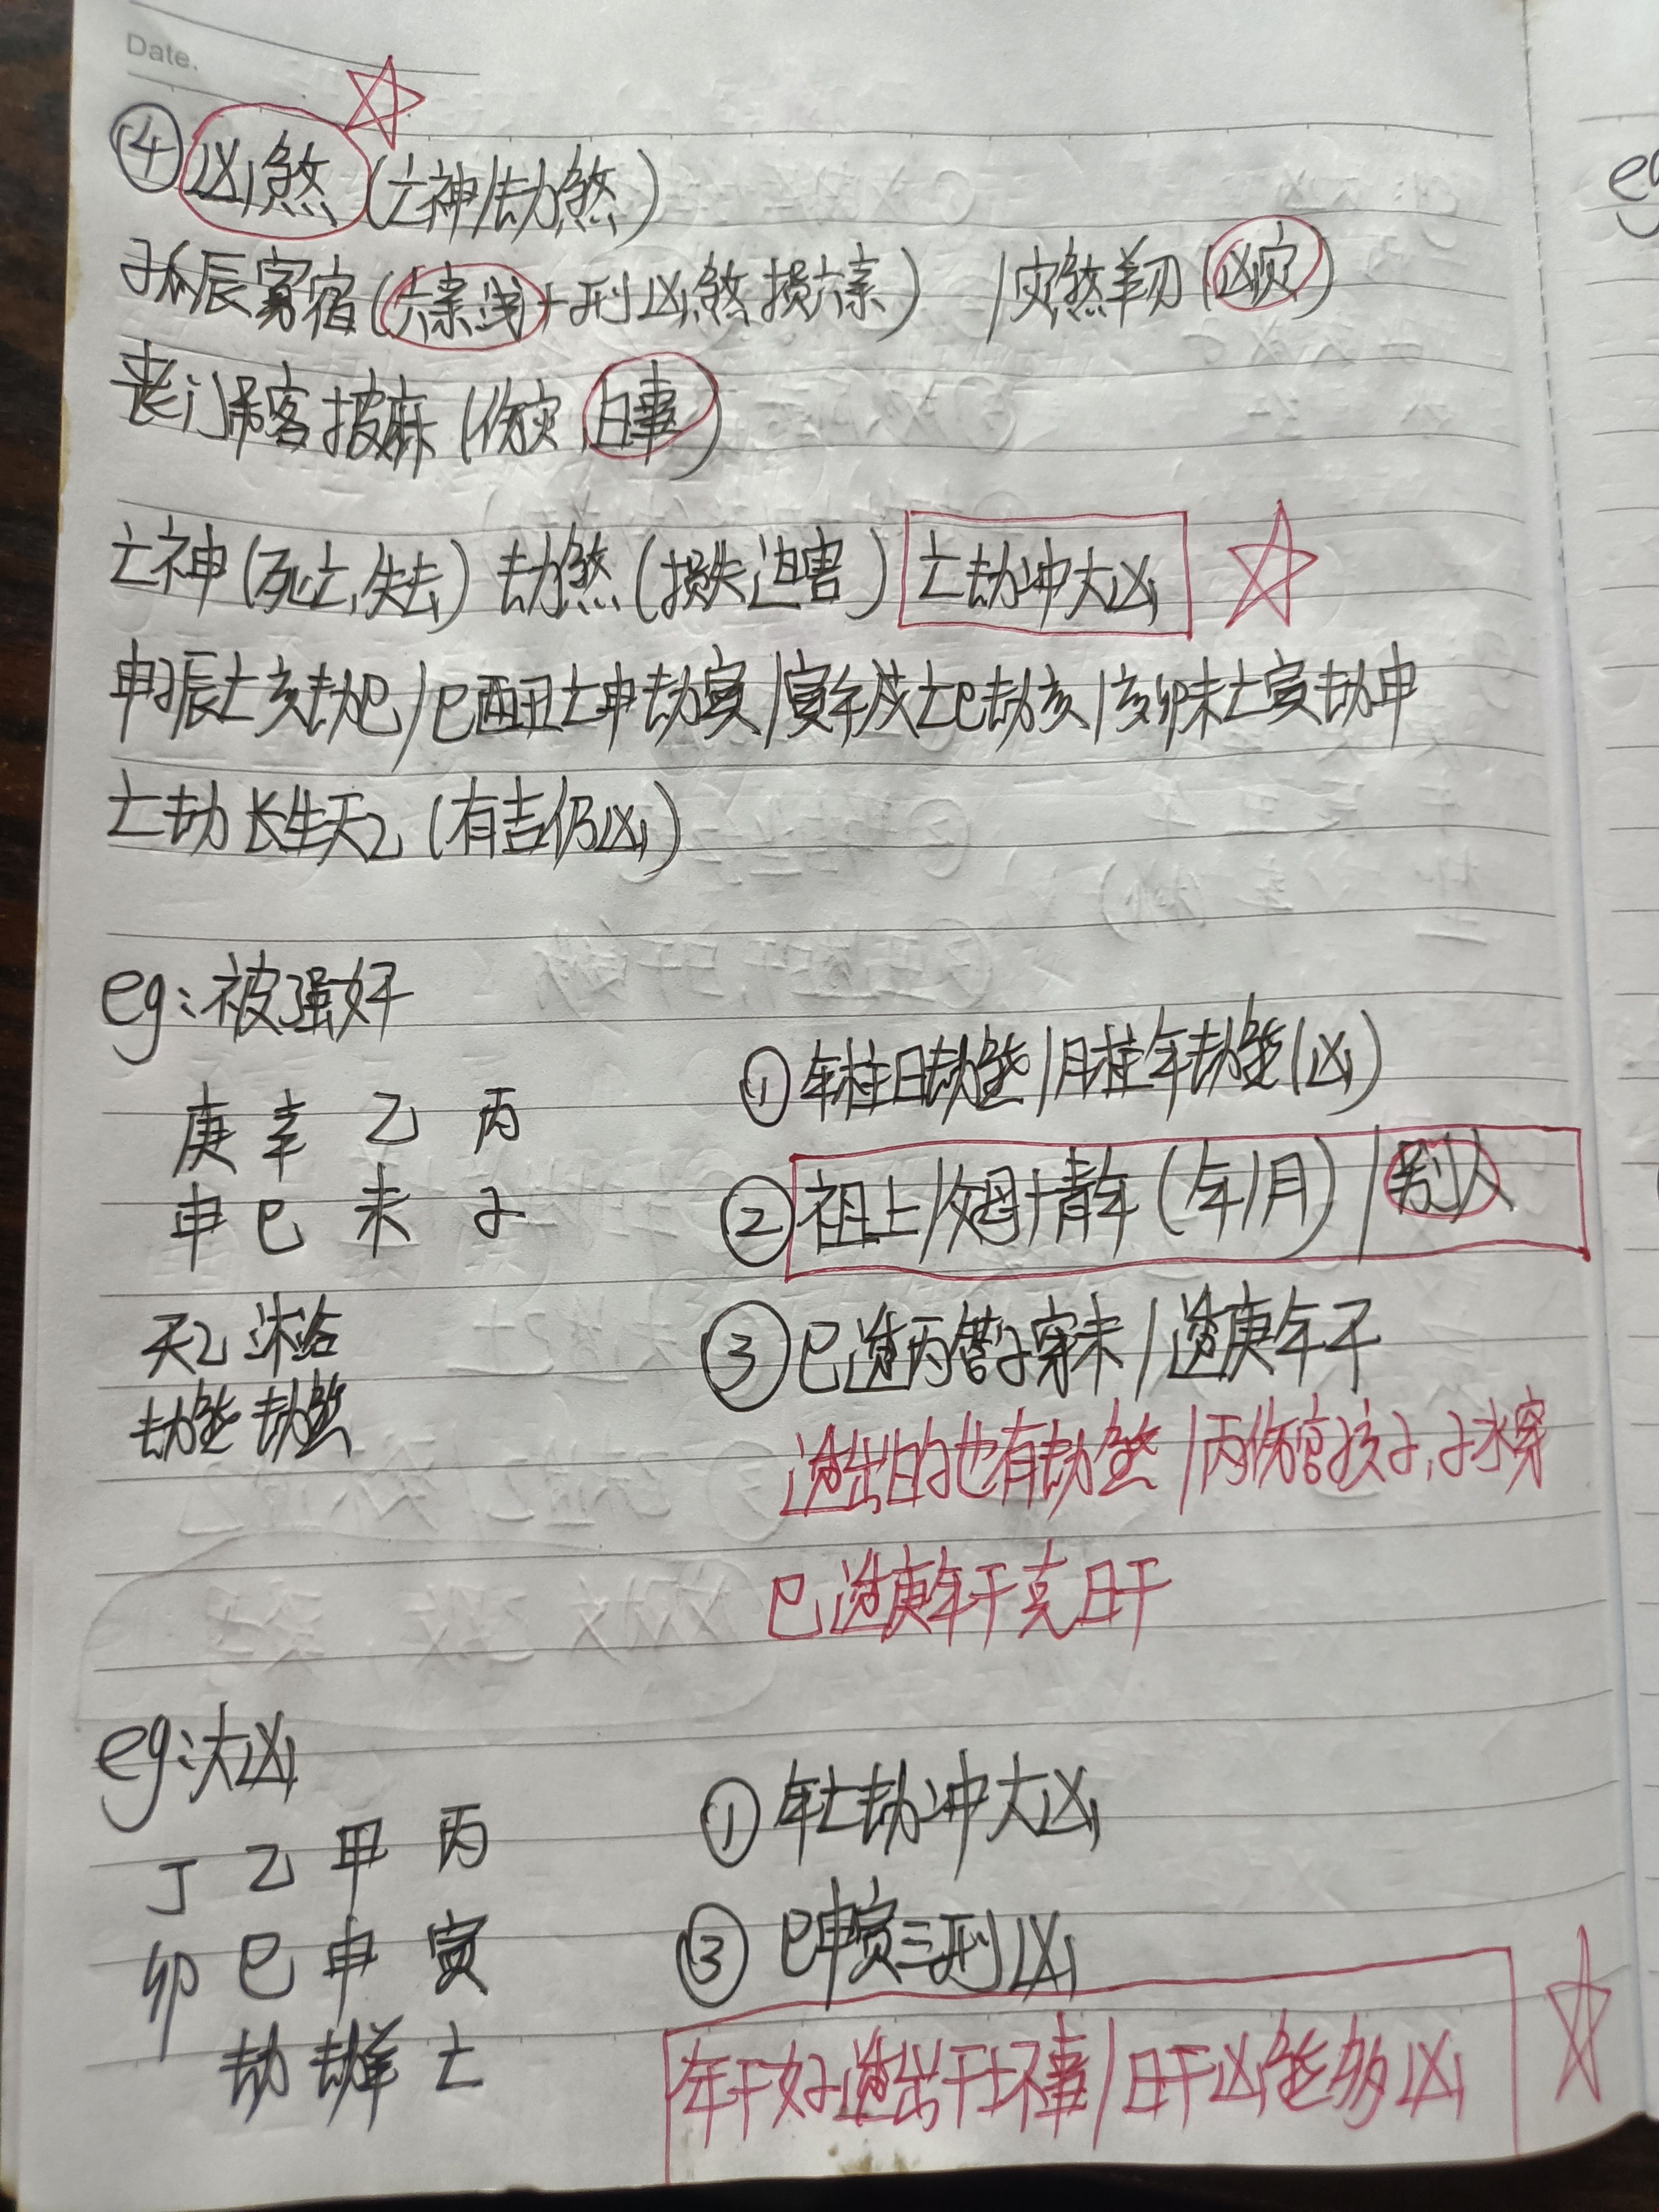 Date.
④凶煞(亡神/劫煞)
孤辰寡宿(六亲浅+刑凶煞损六亲) /灾煞羊刃(凶灾)
丧门吊客披麻(伤灾 白事)
亡神(死亡,失去) 劫煞(损失迫害) 亡劫冲大凶
申子辰亡亥劫巳/巳酉丑亡申劫寅/寅午戌亡巳劫亥/亥卯未亡寅劫申
亡劫长生天乙(有吉仍凶)
eg:被强奸
庚 辛 乙 丙
申 巳 未 子
天乙 沐浴
劫煞 劫煞
①年柱日劫煞/月柱年劫煞(凶)
②祖上/父母+青年(年/月)/别人
③巳透丙管子穿未/透庚年干
透出的也有劫煞/丙伤官孩子,子水穿
巳透庚年干克日干
eg:大凶
丁 乙 甲 丙
卯 巳 申 寅
劫 劫 亡
①年亡劫冲大凶
③巳申寅三刑凶
年干好透出干坏事/日干凶煞多凶
eg